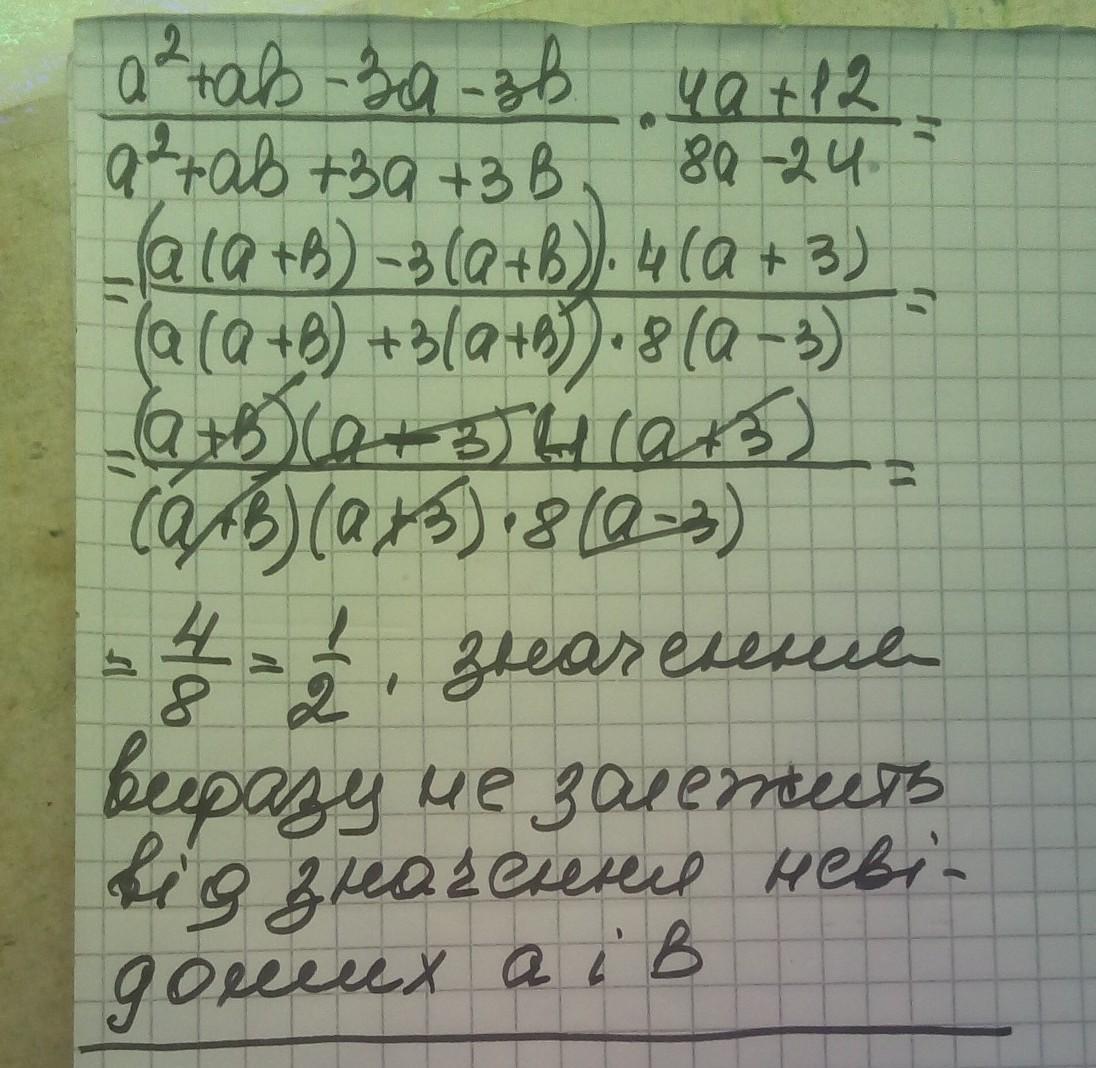 a²+ab-3a-3b / a²+ab+3a+3b · 4a+12 / 8a-24 =
= (a(a+b)-3(a+b))·4(a+3) / (a(a+b)+3(a+b))·8(a-3) =
= (a+b)(a-3)4(a+3) / (a+b)(a+3)·8(a-3) =
= 4/8 = 1/2, значення
виразу не залежить
від значення неві-
домих a і b